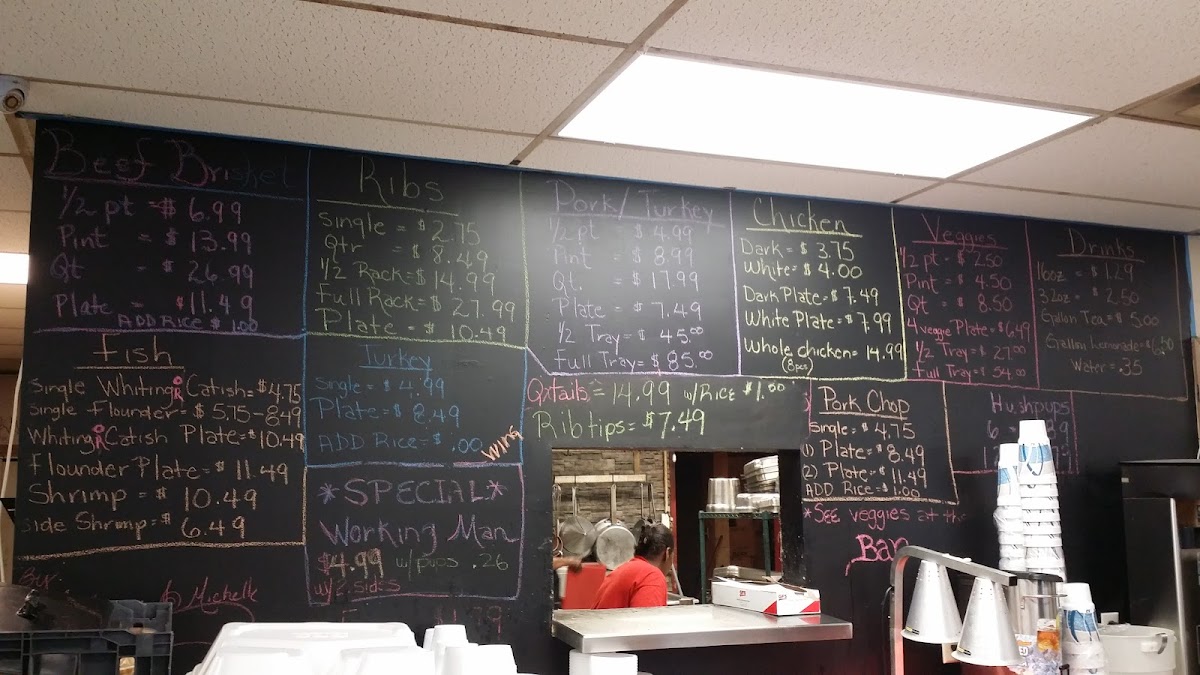 Beef Brisket
1/2 pt = $ 6.99
Pint = $ 13.99
Qt = $ 26.99
Plate = $11.49
ADD RICE $ 1.00
Ribs
Single = $ 2.75
Qtr = $ 8.49
1/2 Rack = $ 14.99
Full Rack = $ 27.99
Plate = $ 10.49
Pork/Turkey
1/2 pt = $ 4.99
Pint = $ 8.99
Qt. = $ 17.99
Plate = $ 7.49
1/2 Tray = $ 45.00
Full Tray = $ 85.00
Chicken
Dark = $ 3.75
White = $ 4.00
Dark Plate = $ 7.49
White Plate = $ 7.99
Whole chicken = 14.99
(8pcs)
Veggies
1/2 pt = $ 2.50
Pint = $ 4.50
Qt = $ 8.50
4 veggie Plate = $6.49
1/2 Tray = $ 27.00
Full Tray = $ 54.00
Drinks
16oz = $ 1.29
32oz = $ 2.50
Gallon Tea = $ 5.00
Gallon Lemonade = $6.50
Water = .35
Fish
Single Whiting OR Catish = $4.75
Single Flounder = $ 5.75-8.49
Whiting OR Catish Plate = $10.49
Flounder Plate = $ 11.49
Shrimp = $ 10.49
Side Shrimp = $ 6.49
Turkey
Single = $ 4.99
Plate = $ 8.49
ADD Rice = $ .00
Wing
*SPECIAL*
Working Man
$4.99 w/pups .26
w/2 sides
Oxtails = 14.99 w/Rice $1.50
Rib tips = $7.49
Pork Chop
Single = $ 4.75
(1) Plate = $8.49
(2) Plate = $11.49
ADD RICE = $ 1.00
*SEE veggies at the
Bar
Hushpups
6
By:
Michelle